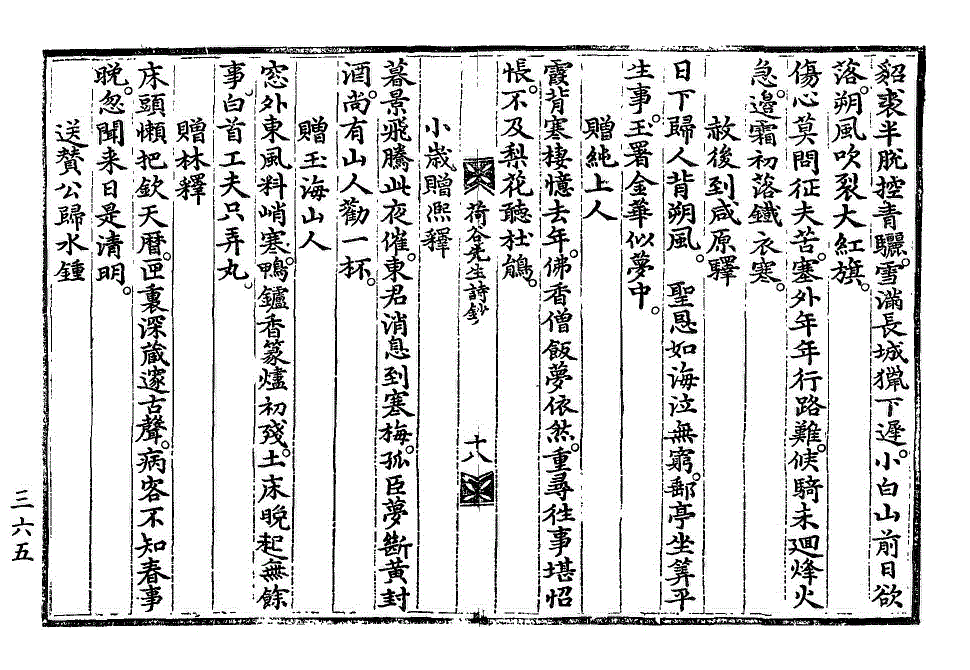 貂裘半脫控靑驪。雪滿長城獵下遲。小白山前日欲
落。朔風吹裂大紅旗。
傷心莫問征夫苦。塞外年年行路難。候騎未廻烽火
急。邊霜初落鐵衣寒。
赦後到咸原驛
日下歸人背朔風。 聖恩如海泣無窮。郵亭坐筭平
生事。玉署金華似夢中。
贈純上人
霞背寒棲憶去年。佛香僧飯夢依然。重尋往事堪怊
悵。不及梨花聽杜鵑。
荷谷先生詩鈔
十八
小歲贈熈釋
暮景飛騰此夜催。東君消息到塞梅。孤臣夢斷黃封
酒。尚有山人勸一杯。
贈玉海山人
窓外東風料峭寒。鴨鑪香篆燼初殘。土床晩起無餘
事。白首工夫只弄丸。
贈林釋
床頭懶把欽天曆。匣裏深藏邃古聲。病客不知春事
晩。忽聞来日是清明。
送贊公歸水鍾
三六五